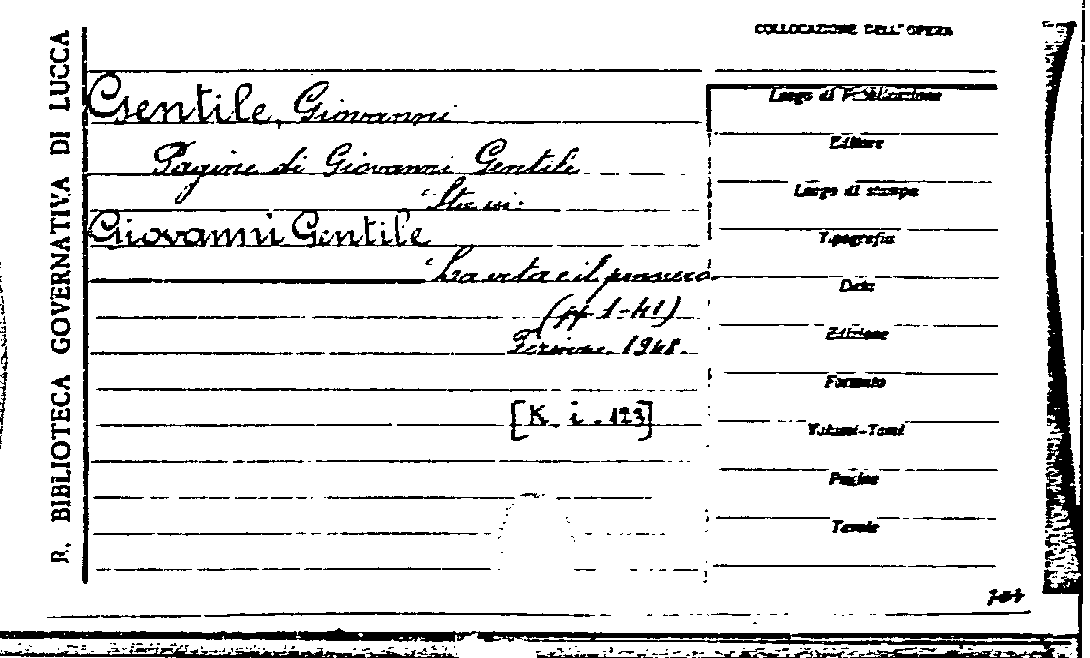 R. BIBLIOTECA GOVERNATIVA DI LUCCA
COLLOCAZIONE DELL'OPERA
Gentile, Giovanni
Pagine di Giovanni Gentile
Giovanni Gentile
La vita e il pensiero
(pp 1-41)
1948.
[K. i. 123]
Luogo di Pubblicazione
Editore
Luogo di stampa
Tipografia
Data
Edizione
Formato
Volumi-Tomi
Pagine
Tavole